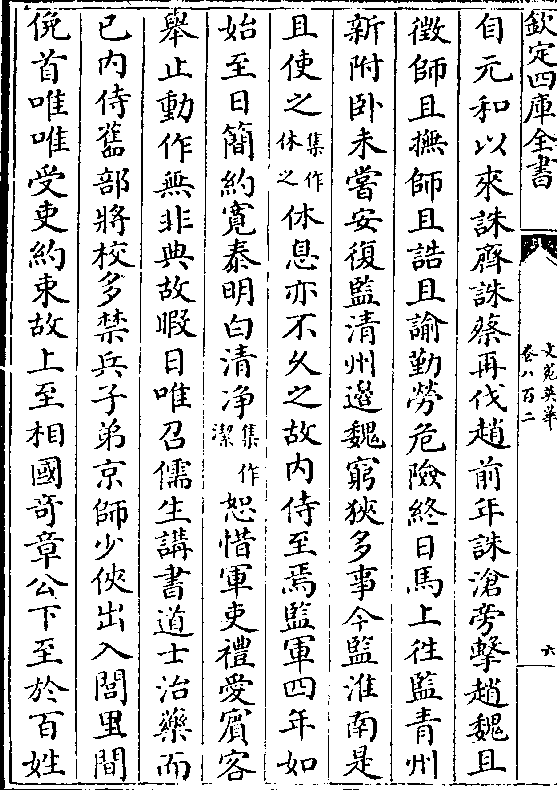 欽定四庫全書
文苑英華
卷八百二
六
自元和以來誅齊誅蔡再伐趙前年誅滄旁擊趙魏且
徵師且撫師且誥且諭勤勞危險終日馬上往監青州
新附卧未嘗安復監清州邉魏窮狹多事今監淮南是
且使之集作休之休息亦不久之故内侍至焉監軍四年如
始至日簡約寛泰明白清浄集作潔恕惜軍吏禮愛賔客
舉止動作無非典故暇日唯召儒生講書道士治藥而
已内侍舊部將校多禁兵子弟京師少俠出入閭里間
俛首唯唯受吏約束故上至相國竒章公下至於百姓